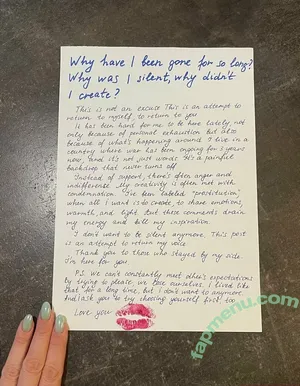 Why have I been gone for so long?
Why was I silent, why didn't
I create?
This is not an excuse This is an attempt to
return to myself, to return to you
It has been hard for me to be here lately, not
only because of personal exhaustion but also
because of what's happening around I live in a
country where war has been ongoing for 3 years
now, and it's not just words It's a painful
backdrop that never turns off
Instead of support, there's often anger and
indifference. My creativity is often met with
condemnation I've been labeled "prostitution"
when all I want is to create to share emotions,
warmth, and light But these comments drain
my energy and kill my inspiration
I don't want to be silent anymore. This post
is an attempt to return my voice
Thank you to those who stayed by my side.
I'm here for you
P.S. We can't constantly meet other's expectations
by trying to please, we lose ourselves. I lived like
that for a long time, but I don't want to anymore
And I ask you to try choosing yourself first too
Love you
fapmenu.com